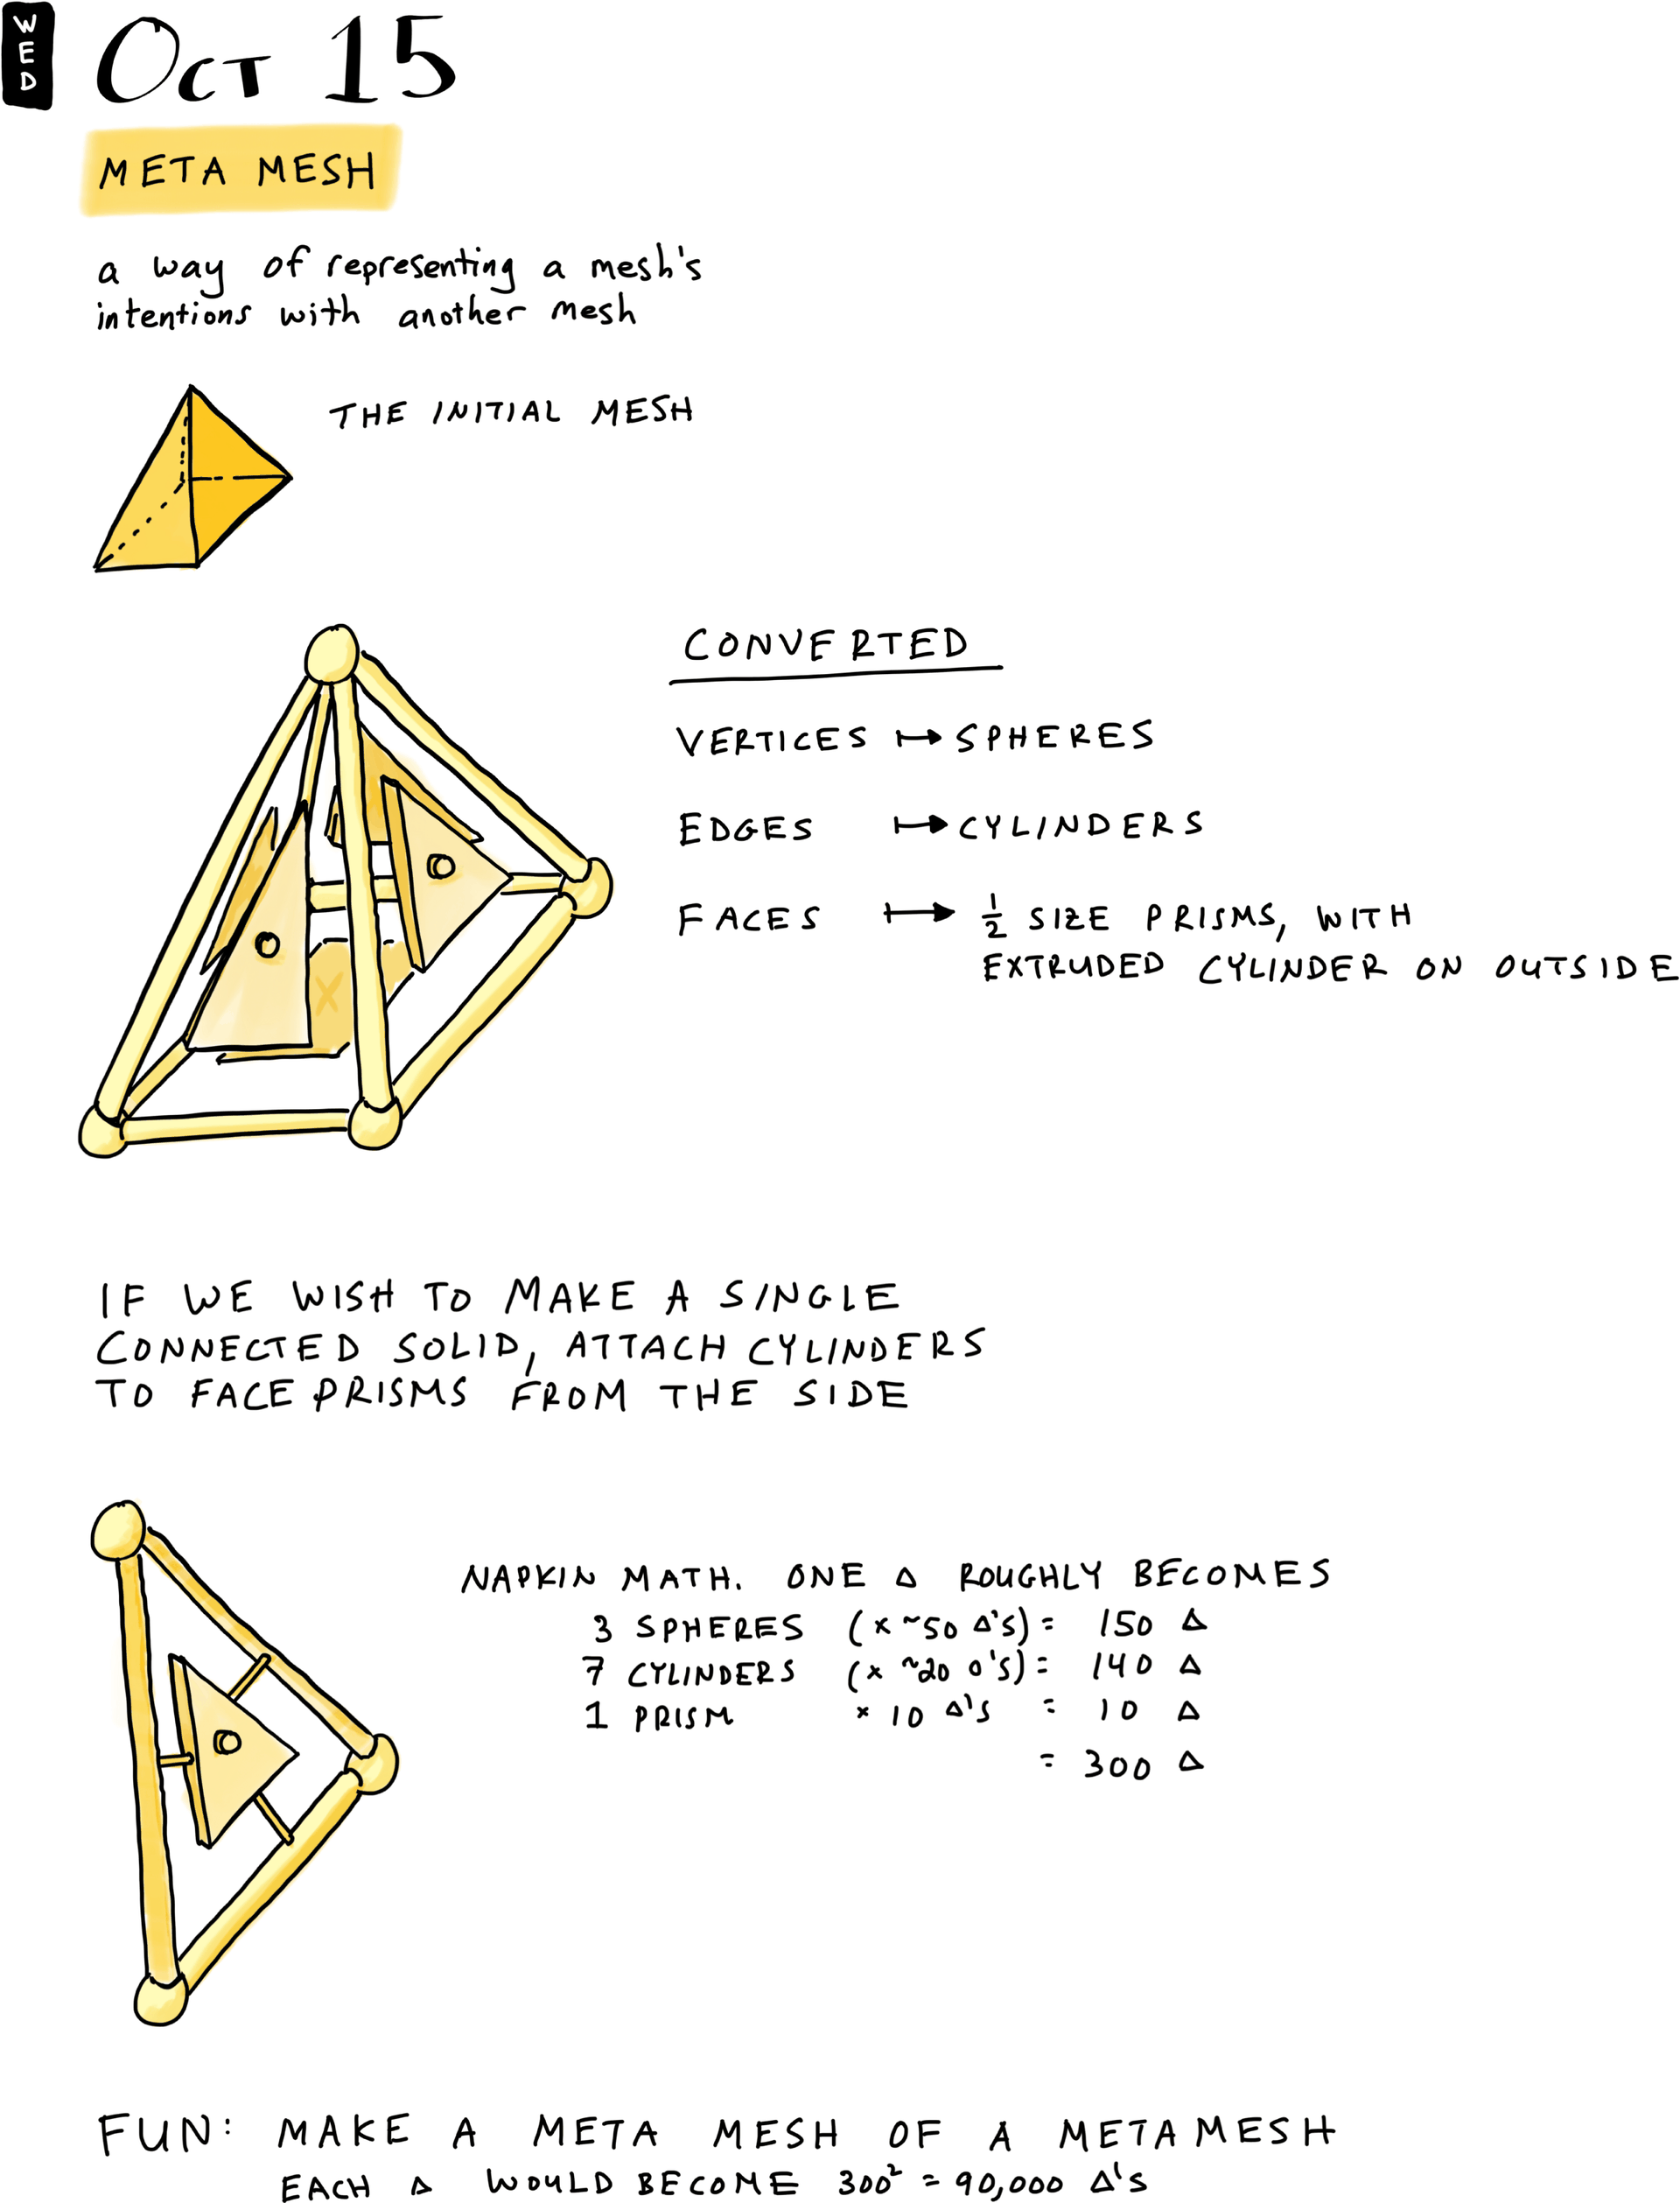 WED
OCT 15
META MESH
a way of representing a mesh's
intentions with another mesh
THE INITIAL MESH
CONVERTED
VERTICES ↦ SPHERES
EDGES ↦ CYLINDERS
FACES ↦ 1/2 SIZE PRISMS, WITH
EXTRUDED CYLINDER ON OUTSIDE
X
IF WE WISH TO MAKE A SINGLE
CONNECTED SOLID, ATTACH CYLINDERS
TO FACE PRISMS FROM THE SIDE
NAPKIN MATH. ONE Δ ROUGHLY BECOMES
3 SPHERES (× ~50 Δ'S) = 150 Δ
7 CYLINDERS (× ~20 0'S) = 140 Δ
1 PRISM × 10 Δ'S = 10 Δ
= 300 Δ
FUN: MAKE A META MESH OF A METAMESH
EACH Δ WOULD BECOME 300² = 90,000 Δ'S